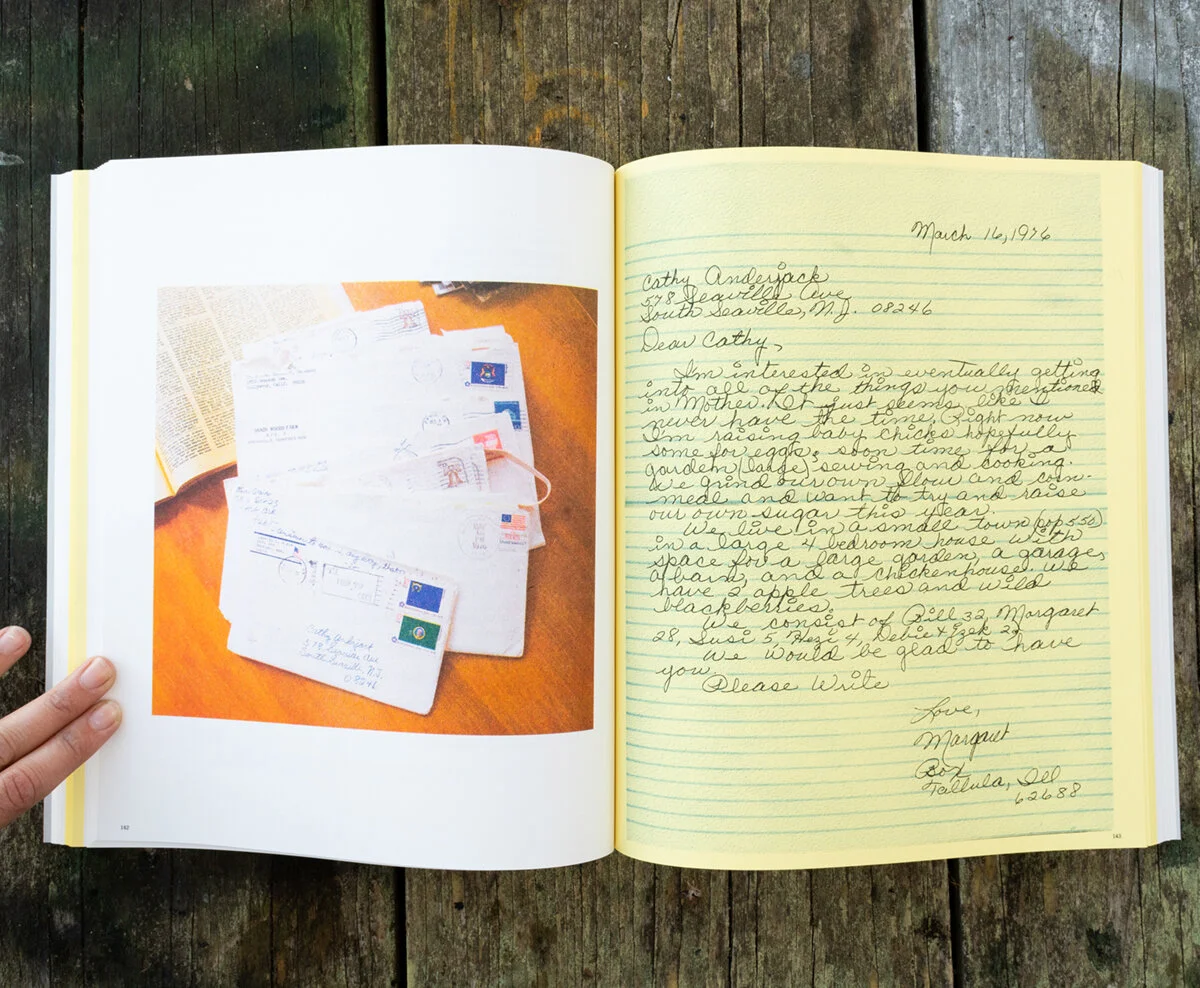 Cathy Anderjack
578 Seaville Ave
South Seaville N.J.
08246
142
March 16, 1976
Cathy Anderjack
578 Seaville Ave
South Seaville, N.J. 08246
Dear Cathy,
I'm interested in eventually getting
into all of the things you mentioned
in Mother. It just seems like I
never have the time. Right now
I'm raising baby chicks hopefully
some for eggs, soon time for a
garden (large) sewing and cooking.
We grind our own flour and corn-
meal and want to try and raise
our own sugar this year.
We live in a small town (pop 550)
in a large 4 bedroom house with
space for a large garden, a garage,
a barn, and a chickenhouse. We
have 2 apple trees and wild
blackberries.
We consist of Bill 32, Margaret
28, Susi 5, Hezi 4, Debie & Izek 2½
We would be glad to have
you.
Please Write
Love,
Margaret
Box
Tallula, Ill
62688
143